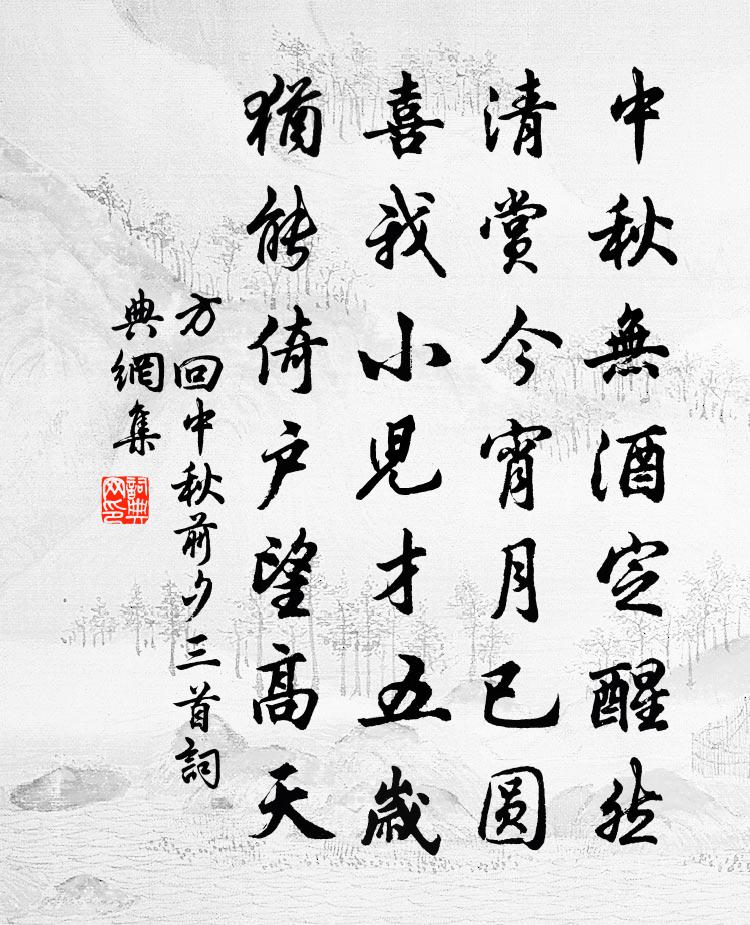 中秋無酒定醒然
清賞今宵月已圓
喜我小児才五歲
猶能倚户望高天
方回中秋前夕三首詞
典網集
詞典
网印